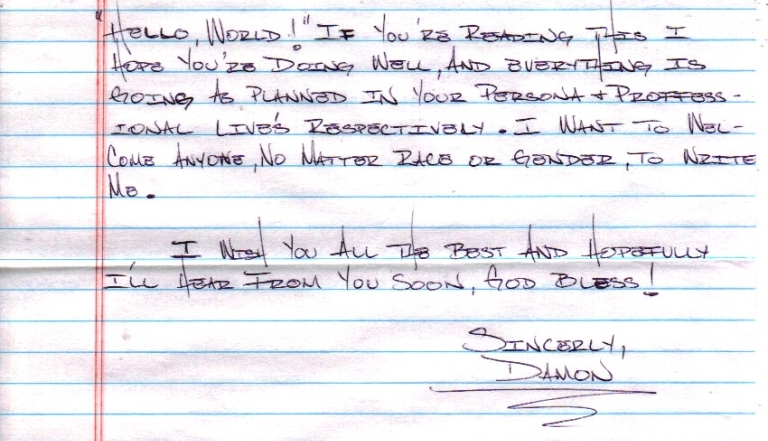 "Hello, World!" If you're reading this I
hope you're doing well, and everything is
going as planned in your persona + proffess-
ional live's respectively. I want to wel-
come anyone, no matter race or gender, to write
me.
I wish you all the best and hopefully
I'll hear from you soon, God bless!
Sincerly,
Damon